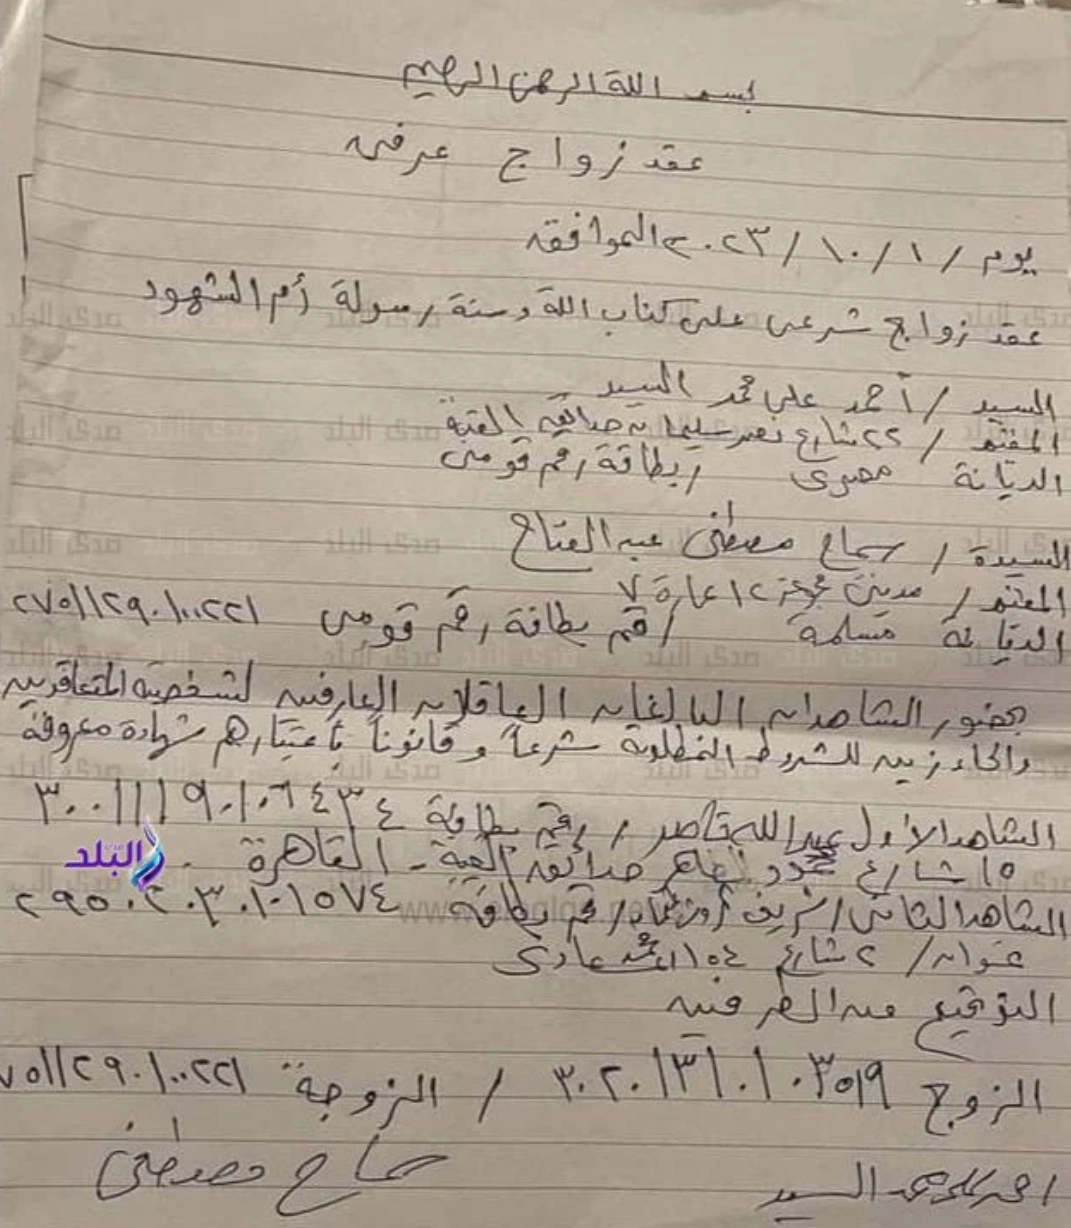 بسم اللة الرحمن الرحيم
عقد زواج عرفى
يوم / ١ / ١٠ / ٢٠٢٣ الموافقه
عقد زواج شرعى على كتاب اللة وسنة رسولة أم الشهود
السيد / أحمد على محمد السيد
المقيم / ٢٢ شارع نصر سليمان حدائق القبة
الديانة مصرى / بطاقة رقم قومى
السيدة / سماح مصطفى عبد الفتاح
المقيم / مدينة ١٢ عمارة ٧
الديانة مسلمة / رقم بطاقة رقم قومى ٢٧٥١١٢٩٠١٠٠٢٢١
بحضور الشاهدان البالغان العاقلان العارفين لشخصية المتعاقدين
والحائزين للشروط المطلوبة شرعاً وقانوناً بأعتبارهم شهادة معروفة
الشاهد الأول عبدالله ناصر / رقم بطاقة ٣٠٠١١١١٩٠١٠٦٤٣٤
١٥ شارع حدائق القبة - القاهرة -
البلد
الشاهد الثانى / شريف / رقم بطاقة ٢٩٥٠٢٠٣٠١٠١٥٧٤
عنوان / ٢ شارع ١٥٤ معادى
التوقيع من الطرفين
الزوج ٣٠٢٠١٣١٠١٠٣٥١٩ / الزوجة ٧٥١١٢٩٠١٠٠٢٢١
احمد على محمد السيد سماح مصطفى
صدى البلد